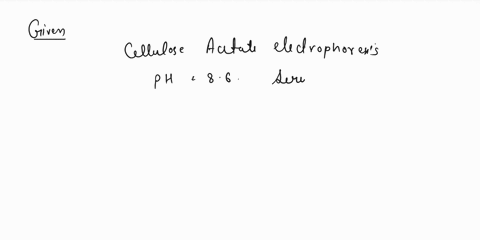 Given
Cellulose Acetate electrophoresis
pH = 8.6. Seru